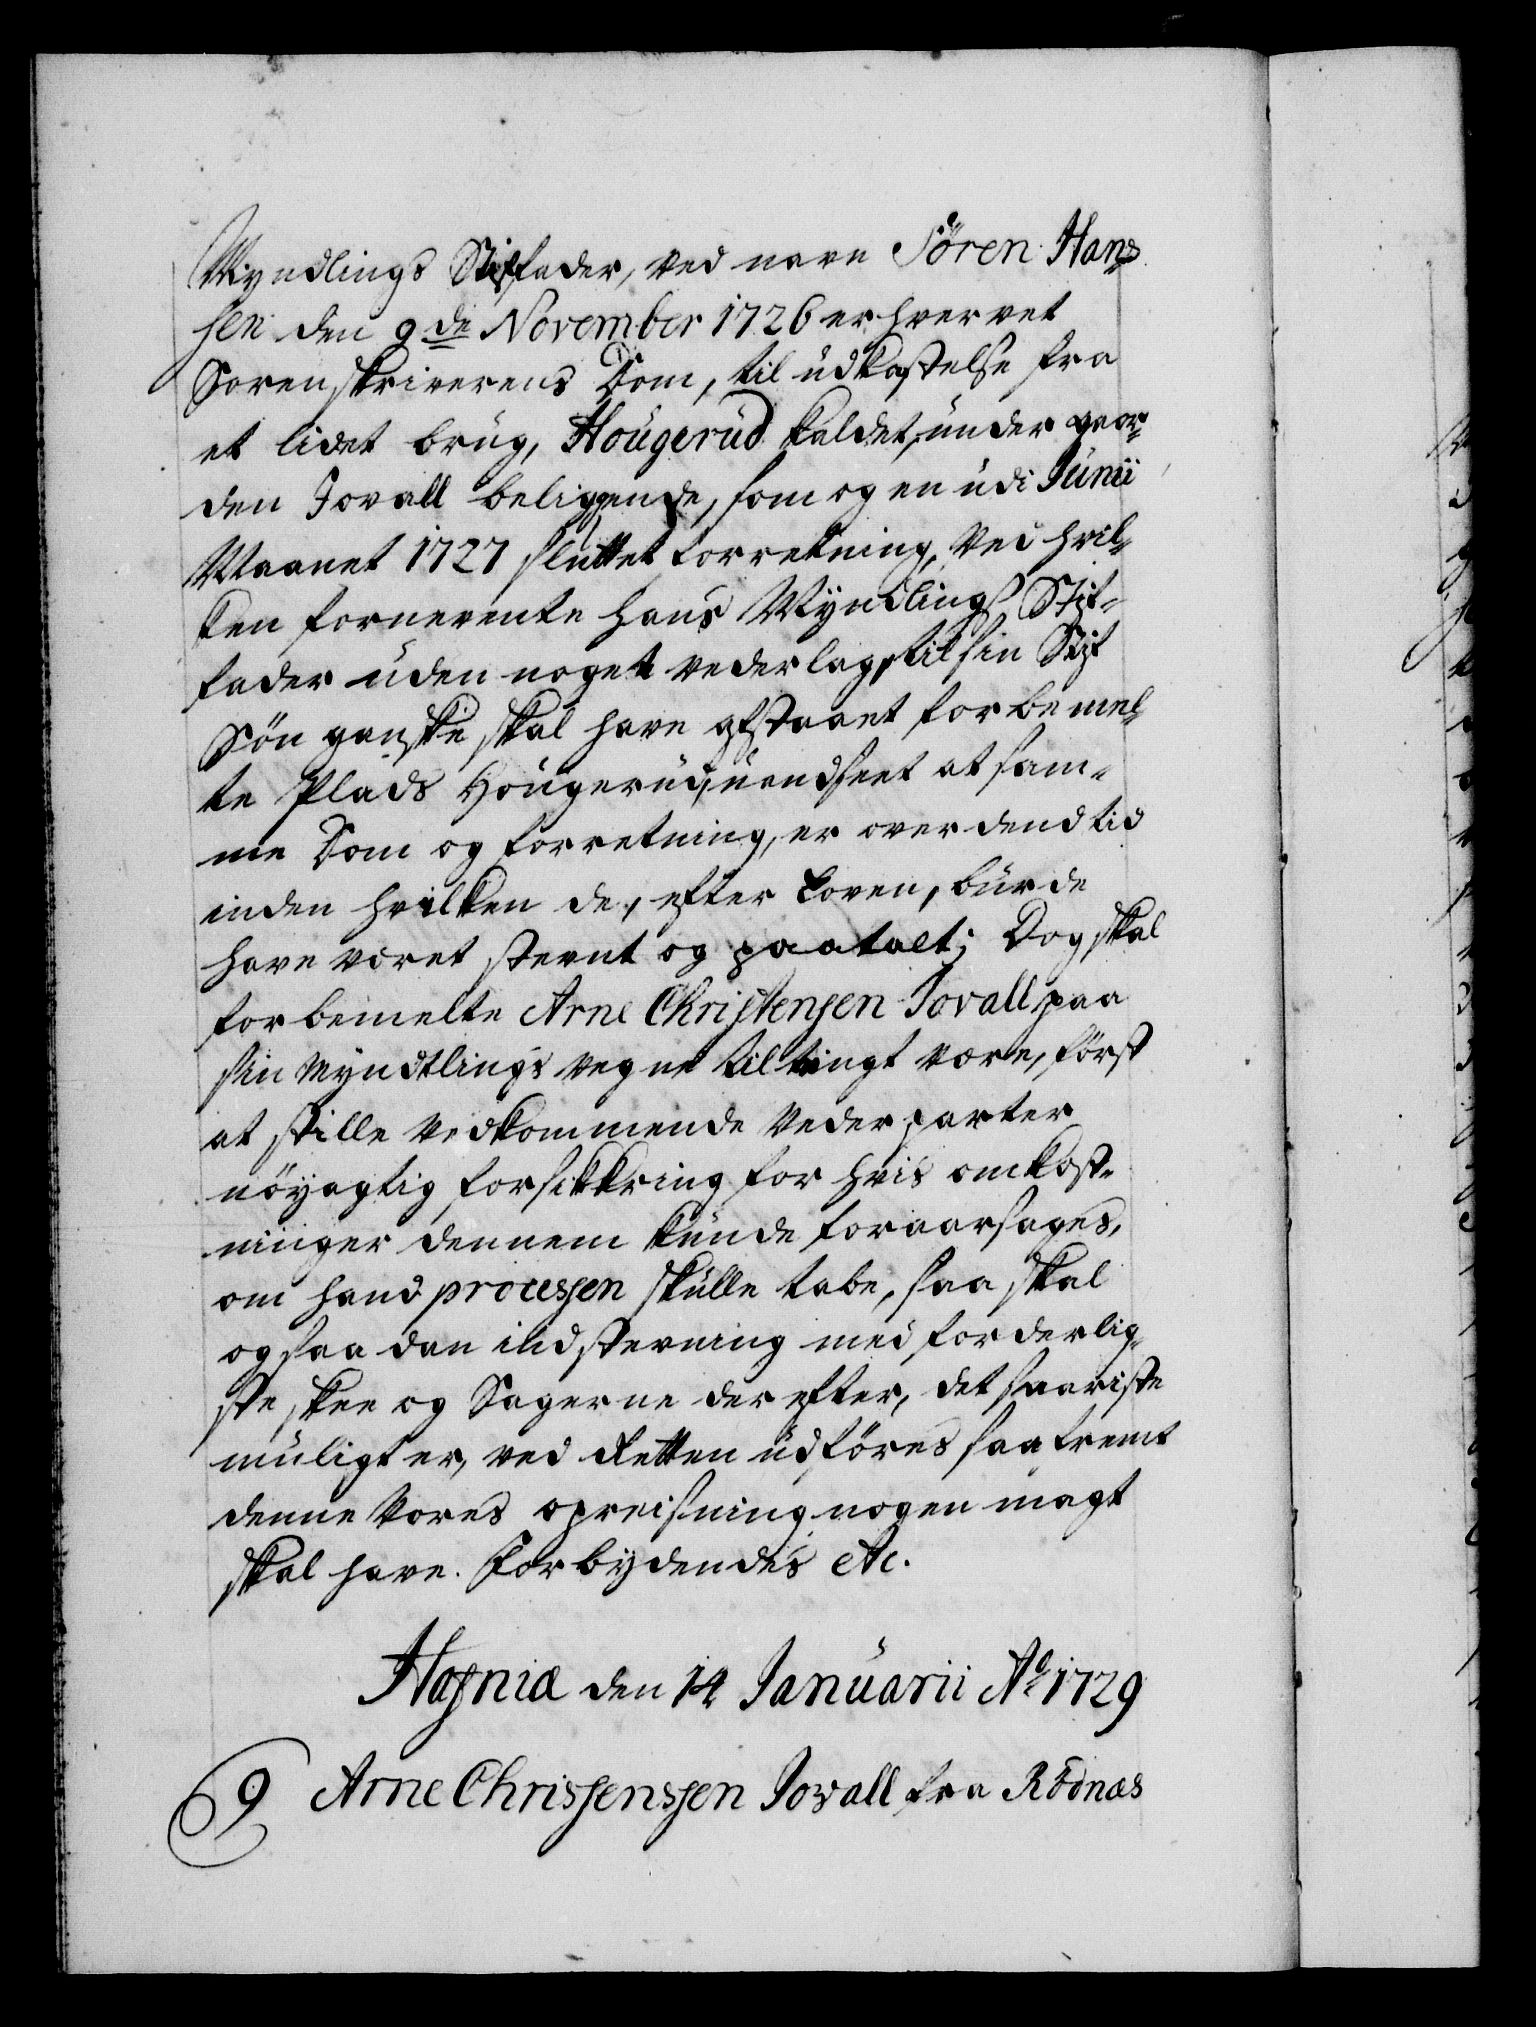 Myndlings Stiffader, ved navn Sören Hans¬
sen den 9de November 1726 erhvervet
Sorenskriverens Dom, til udkastelse fra
et lidet brug, Hougerud kaldet, under gaar¬
den Jovall beliggende, som og en udi Junii
Maanet 1727 sluttet forretning, ved hvil¬
ken fornevnte hans Myndlings Stif¬
fader uden noget vederlag, til sin Stif
Sön ganske skal have afstaaet forbemel¬
te Plads Hougerud, uendseet at sam¬
me Dom og forretning, er over dend tid
inden hvilken de, efter Loven, burde
have været stevnt og paatalt; Dog skal
forbemelte Arne Christensen Jovall paa
sin Myndtlings vegne tiltengt være, först
at stille vedkommende vederparter
nöyagtig forsikkring for hvis omkost¬
ninger dennem kunde foraarsages,
om hand processen skulle tabe, saa skal
og saadan indstevning med forderlig¬
ste skee og Sagerne derefter, det snariste
muligt er, ved Retten udföres saafremt
denne Vores opreisning nogen magt
skal have. Forbydendes etc.
Hafniæ den 14 Januarii Ao 1729
9 Arne Chrissenssen Jovall fra Rödnæs